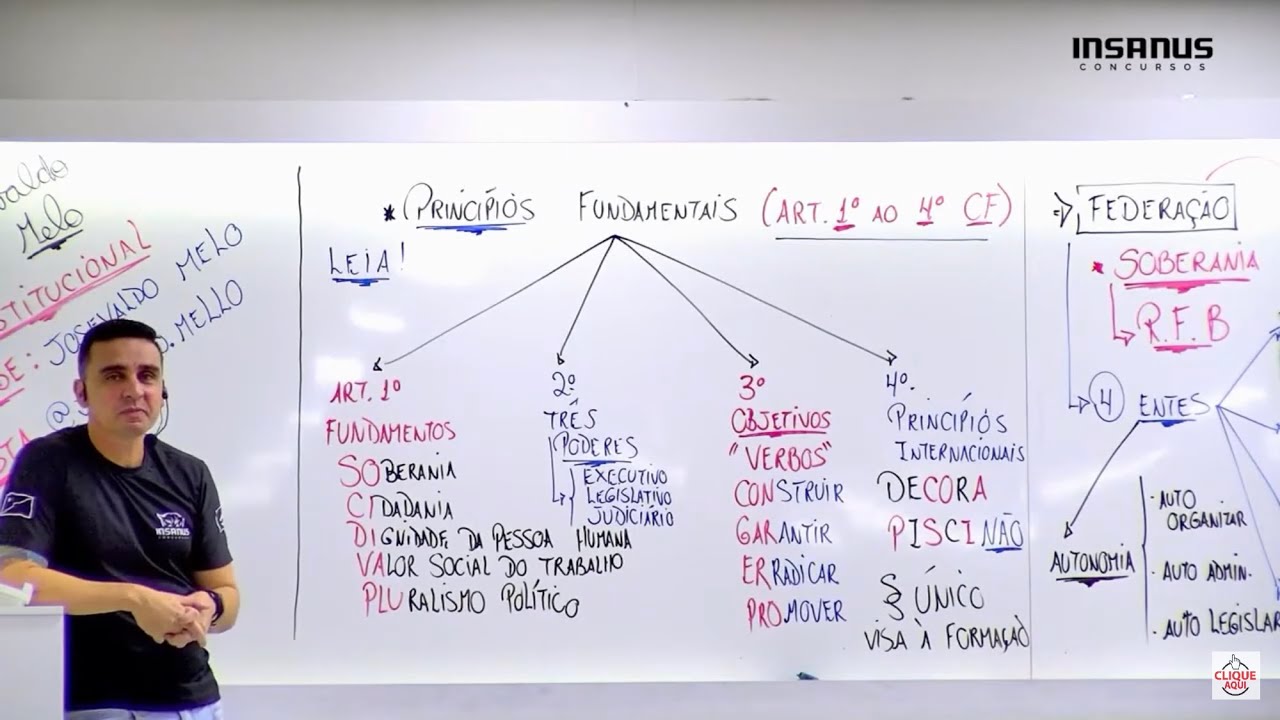 INSANUS
CONCURSOS
Melo
JOSEVALDO MELO
.MELLO
INSANUS
* PRINCÍPIOS FUNDAMENTAIS (ART. 1º AO 4º CF)
LEIA!
ART. 1º
FUNDAMENTOS
SOBERANIA
CIDADANIA
DIGNIDADE DA PESSOA HUMANA
VALOR SOCIAL DO TRABALHO
PLURALISMO POLÍTICO
2º
TRÊS
PODERES
EXECUTIVO
LEGISLATIVO
JUDICIÁRIO
3º
OBJETIVOS
"VERBOS"
CONSTRUIR
GARANTIR
ERRADICAR
PROMOVER
4º.
PRINCÍPIOS
INTERNACIONAIS
DECORA
PISCINÃO
§ ÚNICO
VISA À FORMAÇÃO
⇒ FEDERAÇÃO
* SOBERANIA
R.F.B
4 ENTES
AUTONOMIA
· AUTO
ORGANIZAR
· AUTO ADMIN.
· AUTO LEGISLAR
CLIQUE
AQUI